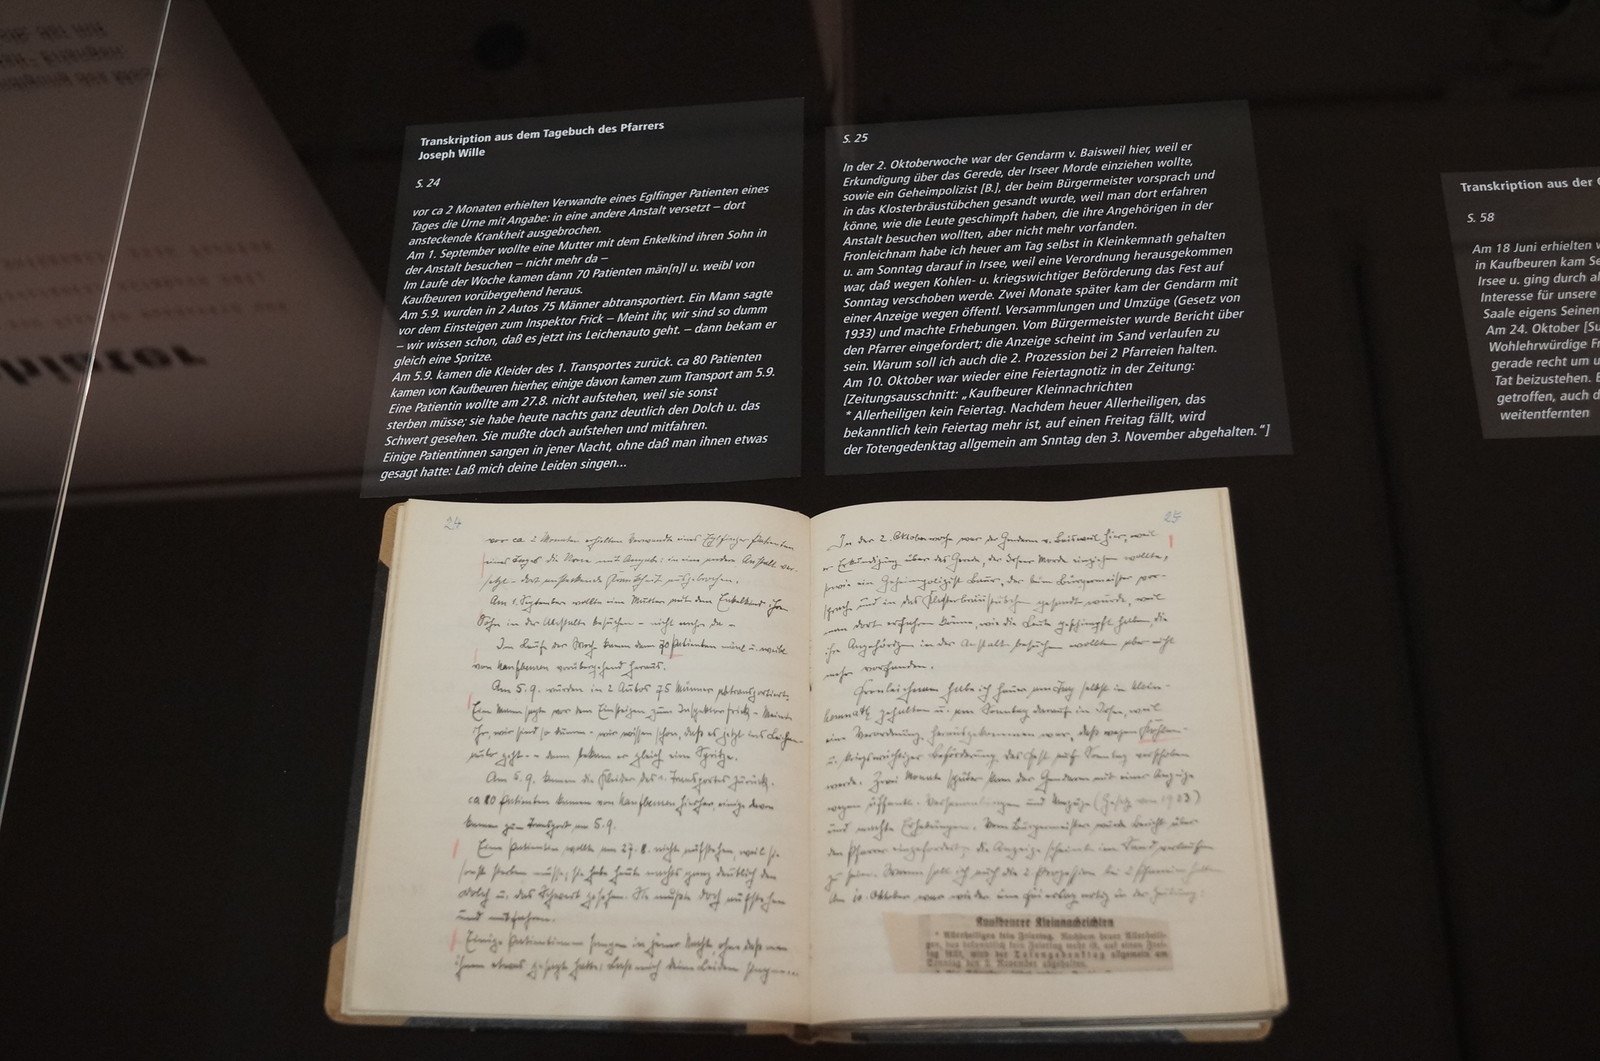 Transkription aus dem Tagebuch des Pfarrers
Joseph Wille
S. 24
vor ca 2 Monaten erhielten Verwandte eines Eglfinger Patienten eines
Tages die Urne mit Angabe: in eine andere Anstalt versetzt – dort
ansteckende Krankheit ausgebrochen.
Am 1. September wollte eine Mutter mit dem Enkelkind ihren Sohn in
der Anstalt besuchen – nicht mehr da –
Im Laufe der Woche kamen dann 70 Patienten män[n]l u. weibl von
Kaufbeuren vorübergehend heraus.
Am 5.9. wurden in 2 Autos 75 Männer abtransportiert. Ein Mann sagte
vor dem Einsteigen zum Inspektor Frick – Meint ihr, wir sind so dumm
– wir wissen schon, daß es jetzt ins Leichenauto geht. – dann bekam er
gleich eine Spritze.
Am 5.9. kamen die Kleider des 1. Transportes zurück. ca 80 Patienten
kamen von Kaufbeuren hierher, einige davon kamen zum Transport am 5.9.
Eine Patientin wollte am 27.8. nicht aufstehen, weil sie sonst
sterben müsse; sie habe heute nachts ganz deutlich den Dolch u. das
Schwert gesehen. Sie mußte doch aufstehen und mitfahren.
Einige Patientinnen sangen in jener Nacht, ohne daß man ihnen etwas
gesagt hatte: Laß mich deine Leiden singen...
S. 25
In der 2. Oktoberwoche war der Gendarm v. Baisweil hier, weil er
Erkundigung über das Gerede, der Irseer Morde einziehen wollte,
sowie ein Geheimpolizist [B.], der beim Bürgermeister vorsprach und
in das Klosterbräustübchen gesandt wurde, weil man dort erfahren
könne, wie die Leute geschimpft haben, die ihre Angehörigen in der
Anstalt besuchen wollten, aber nicht mehr vorfanden.
Fronleichnam habe ich heuer am Tag selbst in Kleinkemnath gehalten
u. am Sonntag darauf in Irsee, weil eine Verordnung herausgekommen
war, daß wegen Kohlen- u. kriegswichtiger Beförderung das Fest auf
Sonntag verschoben werde. Zwei Monate später kam der Gendarm mit
einer Anzeige wegen öffentl. Versammlungen und Umzüge (Gesetz von
1933) und machte Erhebungen. Vom Bürgermeister wurde Bericht über
den Pfarrer eingefordert; die Anzeige scheint im Sand verlaufen zu
sein. Warum soll ich auch die 2. Prozession bei 2 Pfarreien halten.
Am 10. Oktober war wieder eine Feiertagnotiz in der Zeitung:
[Zeitungsausschnitt: „Kaufbeurer Kleinnachrichten
* Allerheiligen kein Feiertag. Nachdem heuer Allerheiligen, das
bekanntlich kein Feiertag mehr ist, auf einen Freitag fällt, wird
der Totengedenktag allgemein am Snntag den 3. November abgehalten."]
Transkription aus der
S. 58
Am 18 Juni erhielten
in Kaufbeuren kam
Irsee u. ging durch
Interesse für unsere
Saale eigens
Am 24. Oktober
Wohlehrwürdige
gerade recht um
Tat beizustehen.
getroffen, auch
weitentfernten
24
vor ca 2 Monaten erhielten Verwandte eines Eglfinger Patienten
eines Tages die Urne mit Angabe: in eine andere Anstalt ver-
setzt – dort ansteckende Krankheit ausgebrochen.
Am 1. September wollte eine Mutter mit dem Enkelkind ihren
Sohn in der Anstalt besuchen – nicht mehr da –
Im Laufe der Woche kamen dann 70 Patienten mänl u. weibl
von Kaufbeuren vorübergehend heraus.
Am 5.9. wurden in 2 Autos 75 Männer abtransportiert.
Ein Mann sagte vor dem Einsteigen zum Inspektor Frick – Meint
ihr, wir sind so dumm – wir wissen schon, daß es jetzt ins Leichen-
auto geht. – dann bekam er gleich eine Spritze.
Am 5.9. kamen die Kleider des 1. Transportes zurück.
ca 80 Patienten kamen von Kaufbeuren hierher, einige davon
kamen zum Transport am 5.9.
Eine Patientin wollte am 27.8. nicht aufstehen, weil sie
sonst sterben müsse; sie habe heute nachts ganz deutlich den
Dolch u. das Schwert gesehen. Sie mußte doch aufstehen
und mitfahren.
Einige Patientinnen sangen in jener Nacht, ohne daß man
ihnen etwas gesagt hatte: Laß mich deine Leiden singen...
25
In der 2. Oktoberwoche war der Gendarm v. Baisweil hier, weil
er Erkundigung über das Gerede, der Irseer Morde einziehen wollte,
sowie ein Geheimpolizist der beim Bürgermeister vor-
sprach und in das Klosterbräustübchen gesandt wurde, weil
man dort erfahren könne, wie die Leute geschimpft haben, die
ihre Angehörigen in der Anstalt besuchen wollten, aber nicht
mehr vorfanden.
Fronleichnam habe ich heuer am Tag selbst in Klein-
kemnath gehalten u. am Sonntag darauf in Irsee, weil
eine Verordnung herausgekommen war, daß wegen Kohlen-
u. kriegswichtiger Beförderung das Fest auf Sonntag verschoben
werde. Zwei Monate später kam der Gendarm mit einer Anzeige
wegen öffentl. Versammlungen und Umzüge (Gesetz von 1933)
und machte Erhebungen. Vom Bürgermeister wurde Bericht über
den Pfarrer eingefordert; die Anzeige scheint im Sand verlaufen
zu sein. Warum soll ich auch die 2 Prozession bei 2 Pfarreien halten.
Am 10. Oktober war wieder eine Feiertagnotiz in der Zeitung:
Kaufbeurer Kleinnachrichten
* Allerheiligen kein Feiertag. Nachdem heuer Allerheili-
gen, das bekanntlich kein Feiertag mehr ist, auf einen Frei-
tag fällt, wird der Totengedenktag allgemein am
Sonntag den 3. November abgehalten.